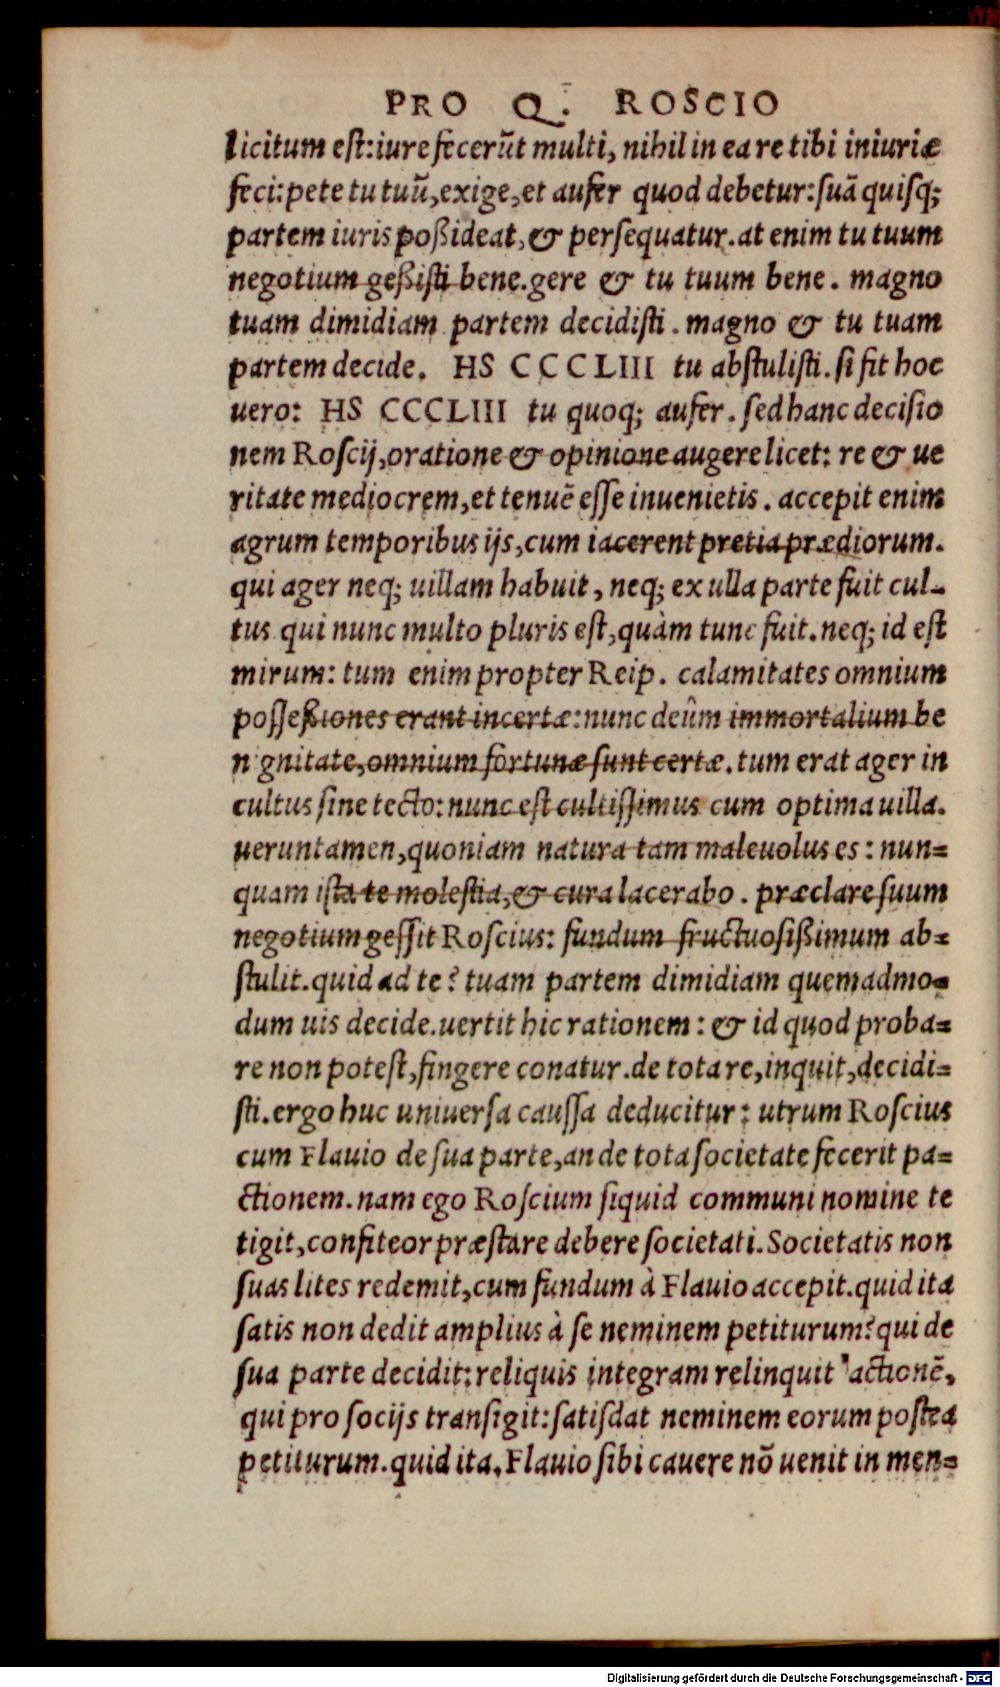 PRO Q. ROSCIO
licitum est: iure fecerũt multi, nihil in ea re tibi iniuriæ
feci: pete tu tuũ, exige, et aufer quod debetur: suã quisq;
partem iuris poßideat, & persequatur. at enim tu tuum
negotium geßisti bene. gere & tu tuum bene. magno
tuam dimidiam partem decidisti. magno & tu tuam
partem decide. HS CCCLIII tu abstulisti. si fit hoc
uero: HS CCCLIII tu quoq; aufer. sed hanc decisio
nem Roscij, oratione & opinione augere licet: re & ue
ritate mediocrem, et tenuẽ esse inuenietis. accepit enim
agrum temporibus ijs, cum iacerent pretia prædiorum.
qui ager neq; uillam habuit, neq; ex ulla parte fuit cul-
tus qui nunc multo pluris est, quàm tunc fuit. neq; id est
mirum: tum enim propter Reip. calamitates omnium
posseßiones erant incertæ: nunc deûm immortalium be
n gnitate, omnium fortunæ sunt certæ. tum erat ager in
cultus sine tecto: nunc est cultissimus cum optima uilla.
ueruntamen, quoniam natura tam maleuolus es: nun-
quam ista te molestia, & cura lacerabo. præclare suum
negotium gessit Roscius: fundum fructuosißimum ab-
stulit. quid ad te? tuam partem dimidiam quemadmo-
dum uis decide. uertit hic rationem: & id quod proba-
re non potest, fingere conatur. de tota re, inquit, decidi-
sti. ergo huc uniuersa caussa deducitur: utrum Roscius
cum Flauio de sua parte, an de tota societate fecerit pa-
ctionem. nam ego Roscium siquid communi nomine te
tigit, confiteor præstare debere societati. Societatis non
suas lites redemit, cum fundum à Flauio accepit. quid ita
satis non dedit amplius à se neminem petiturum? qui de
sua parte decidit: reliquis integram relinquit actionẽ,
qui pro socijs transigit: satisdat neminem eorum postea
petiturum. quid ita. Flauio sibi cauere nõ uenit in men-
Digitalisierung gefördert durch die Deutsche Forschungsgemeinschaft - DFG